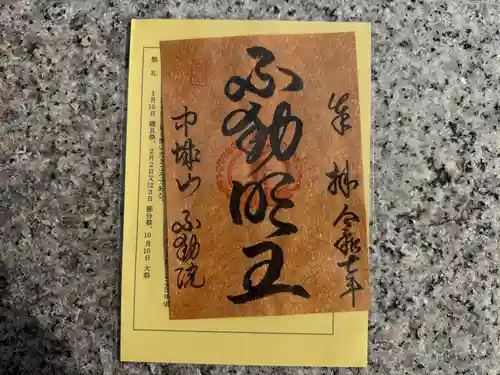 奉拝 令和七年
不動明王
中城山 不動院
祭礼 1月10日 磯良祭、2月2日又は3日 節分祭、10月10日 大祭